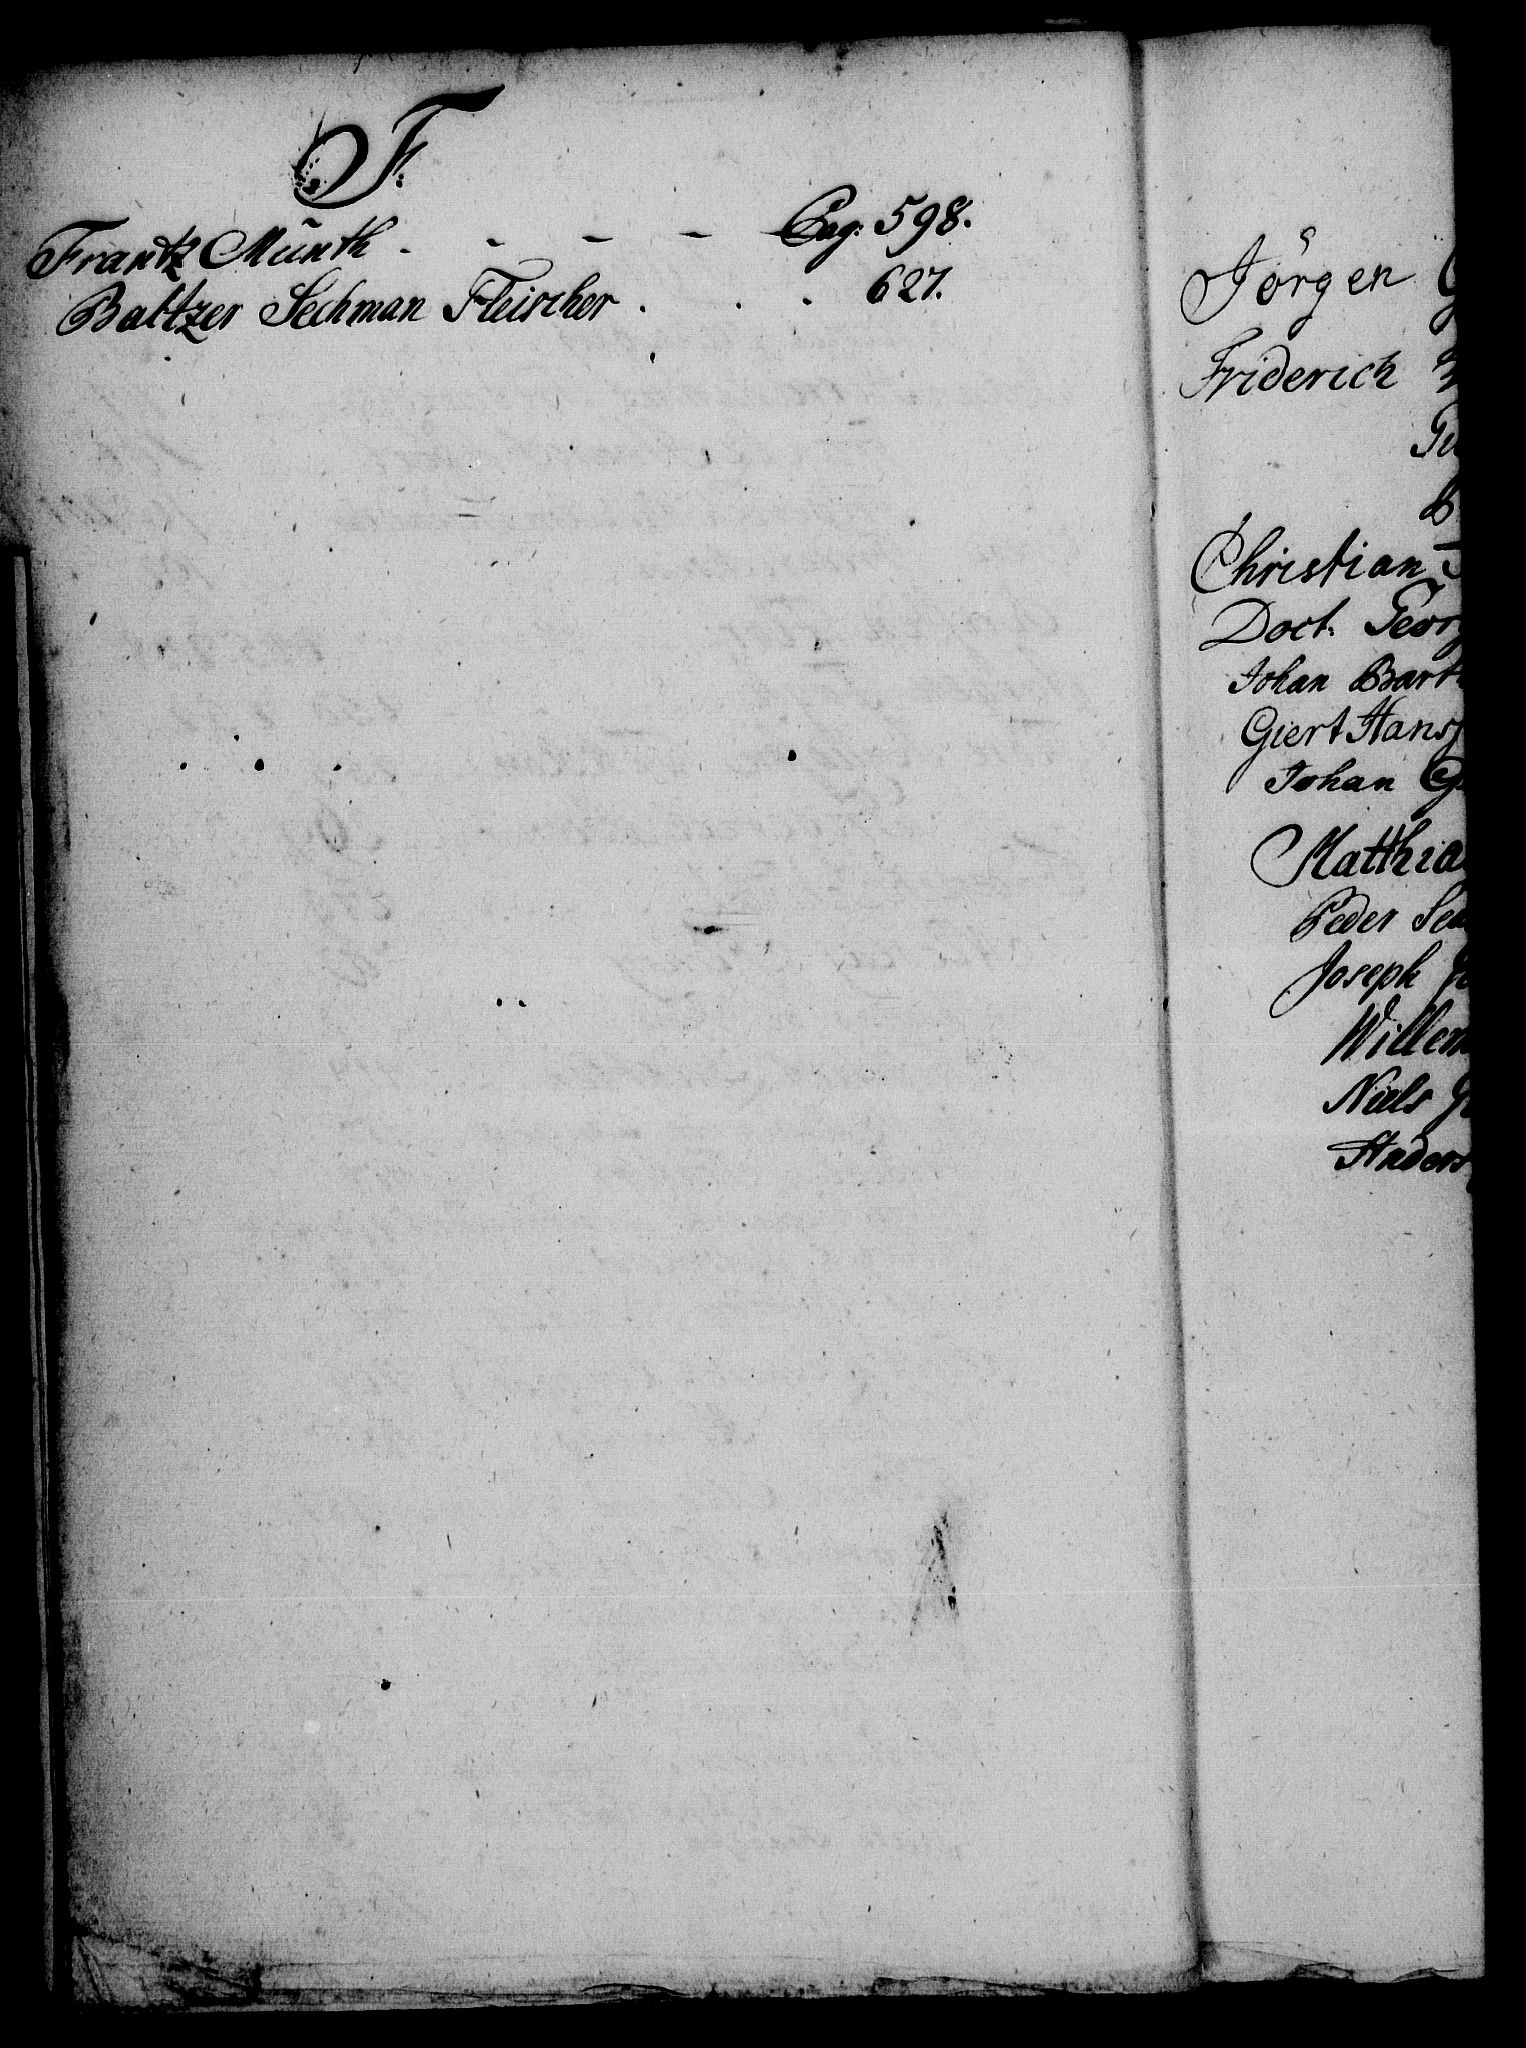 F:
Frantz Münth . - - - Pag: 598.
Baltzer Sechman Fleischer . . . 627.
Jörgen
Friderich
Christian
Doct: Georg
Johan Barth
Giert Hans
Johan
Matthia
Peder
Joseph
Willem
Niels
Anders